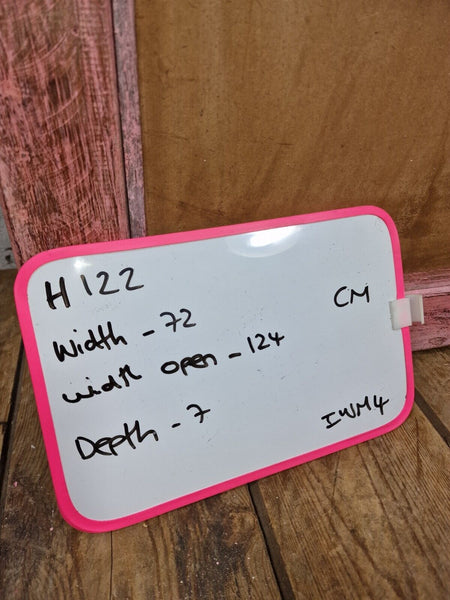 H 122
CM
Width - 72
width open - 124
Depth - 7
IWM4